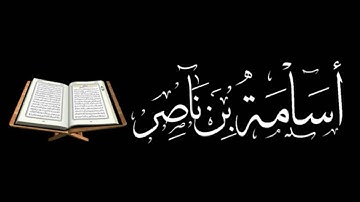 أُسَاْمَة بِنَ نَاْصِر